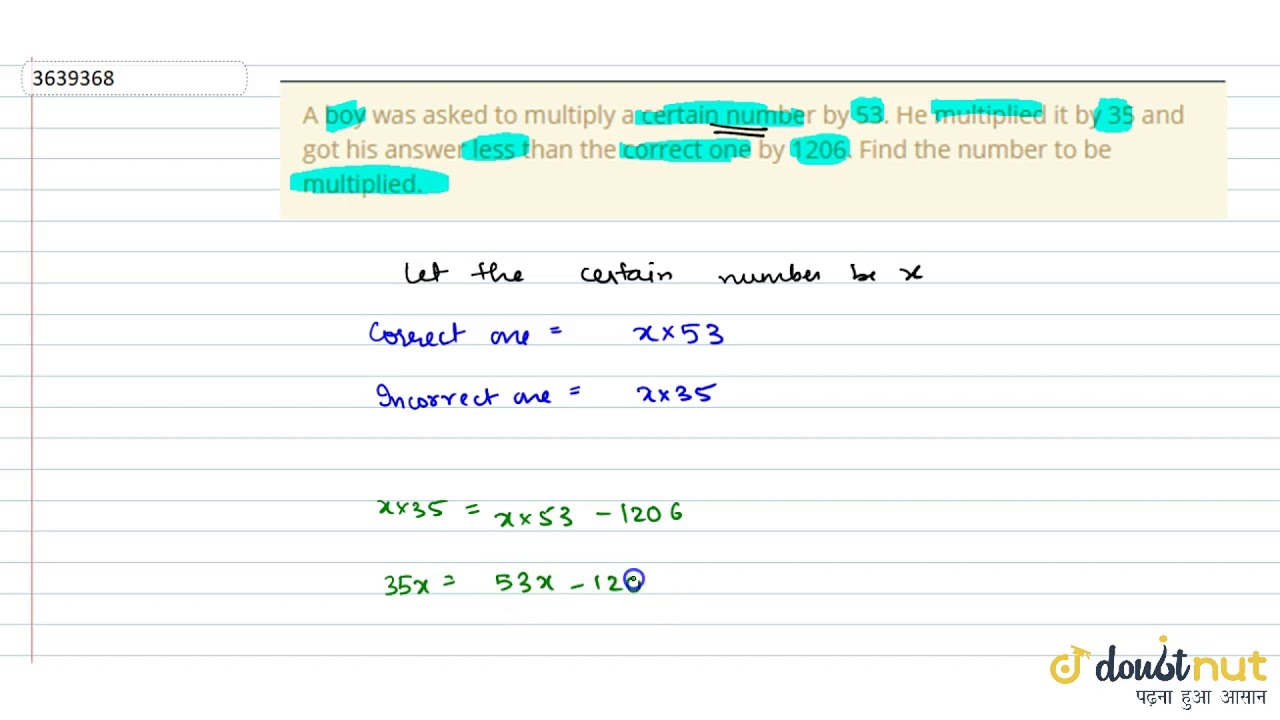 3639368
A boy was asked to multiply a certain number by 53. He multiplied it by 35 and
got his answer less than the correct one by 1206. Find the number to be
multiplied.
Let the certain number be x
Correct one = x×53
Incorrect one = x×35
x×35 = x×53 -1206
35x = 53x -120
doubtnut
पढ़ना हुआ आसान